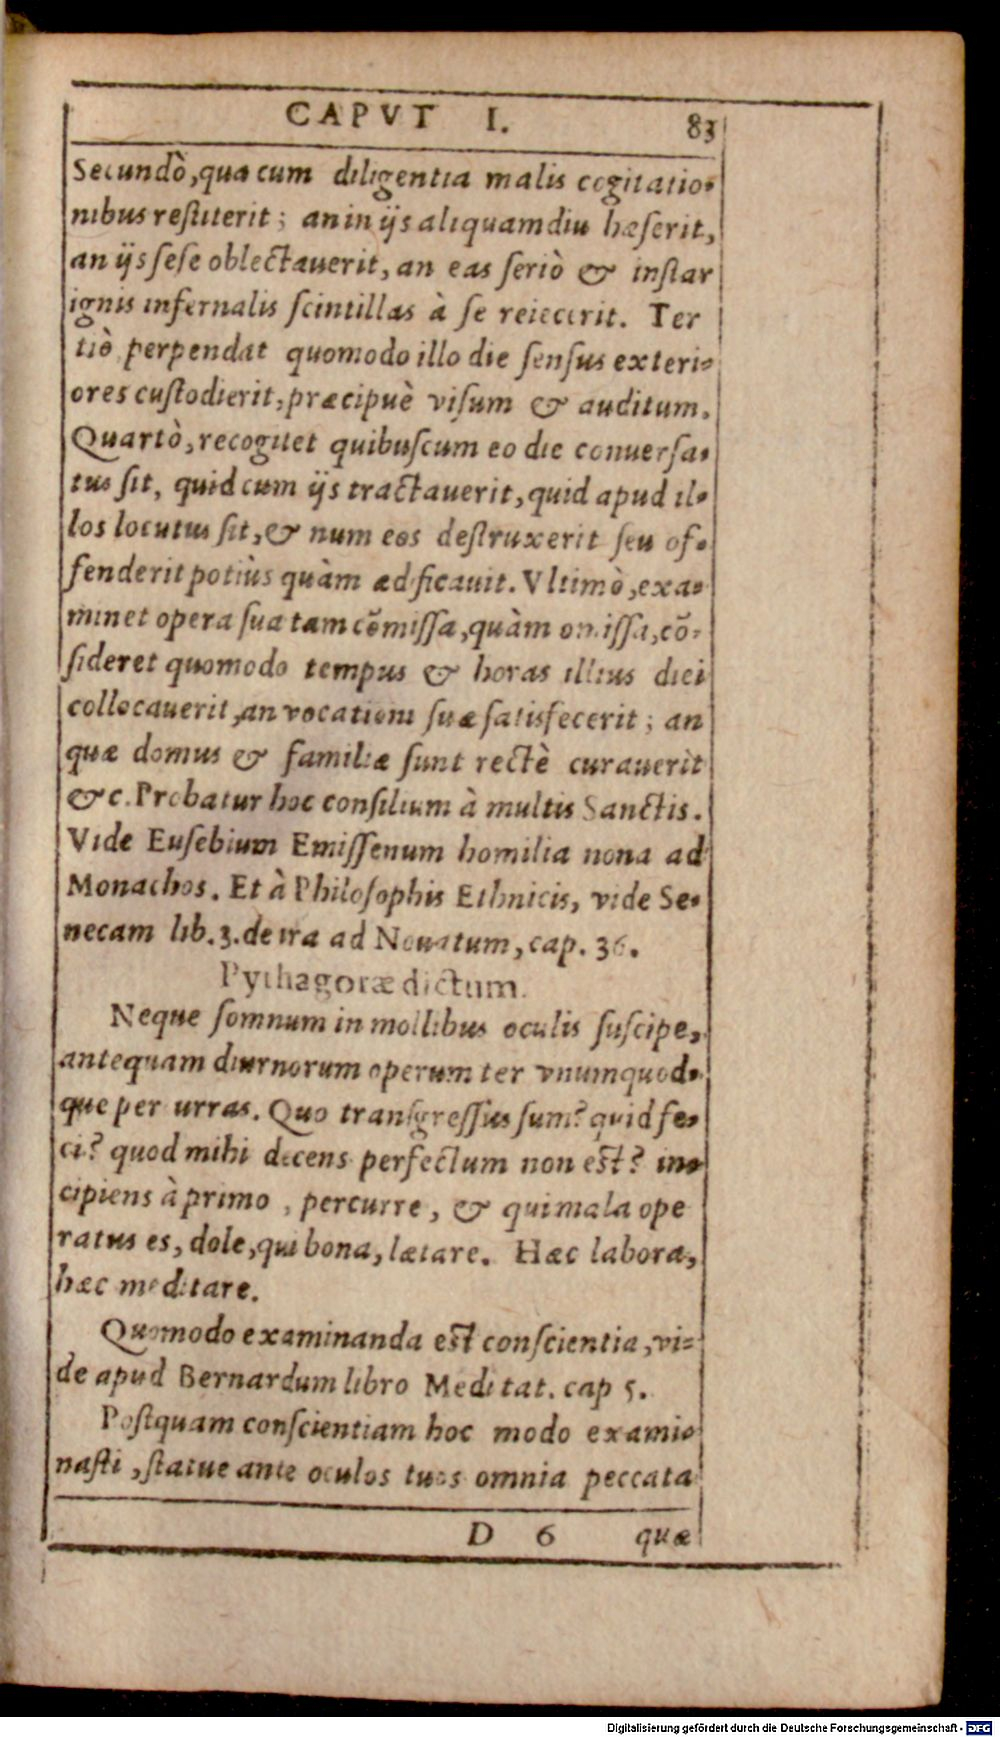 CAPVT I. 83
Secundò, qua cum diligentia malis cogitatio-
nibus restiterit; an in ijs aliquamdiu hæserit,
an ijs sese oblectauerit, an eas seriò & instar
ignis infernalis scintillas à se reiecerit. Ter
tiò perpendat quomodo illo die sensus exteri-
ores custodierit, præcipuè visum & auditum.
Quartò, recogitet quibuscum eo die conuersa-
tus sit, quid cum ijs tractauerit, quid apud il-
los locutus sit, & num eos destruxerit seu of-
fenderit potiùs quàm ædificauit. Vltimò, exa-
minet opera sua tam cõmissa, quàm omissa, cõ-
sideret quomodo tempus & horas illius diei
collocauerit, an vocationi suæ satisfecerit; an
quæ domus & familiæ sunt rectè curauerit
&c. Probatur hoc consilium à multis Sanctis.
Vide Eusebium Emissenum homilia nona ad
Monachos. Et à Philosophis Ethnicis, vide Se-
necam lib. 3. de ira ad Nouatum, cap. 36.
Pythagoræ dictum.
Neque somnum in mollibus oculis suscipe,
antequam diurnorum operum ter vnumquod-
que per urras. Quo transgressus sum? quid fe-
ci? quod mihi decens perfectum non est? in-
cipiens à primo, percurre, & qui mala ope
ratus es, dole, qui bona, lætare. Hæc labora,
hæc meditare.
Quomodo examinanda est conscientia, vi-
de apud Bernardum libro Meditat. cap 5.
Postquam conscientiam hoc modo exami-
nasti, statue ante oculos tuos omnia peccata
D 6 quæ
Digitalisierung gefördert durch die Deutsche Forschungsgemeinschaft - DFG